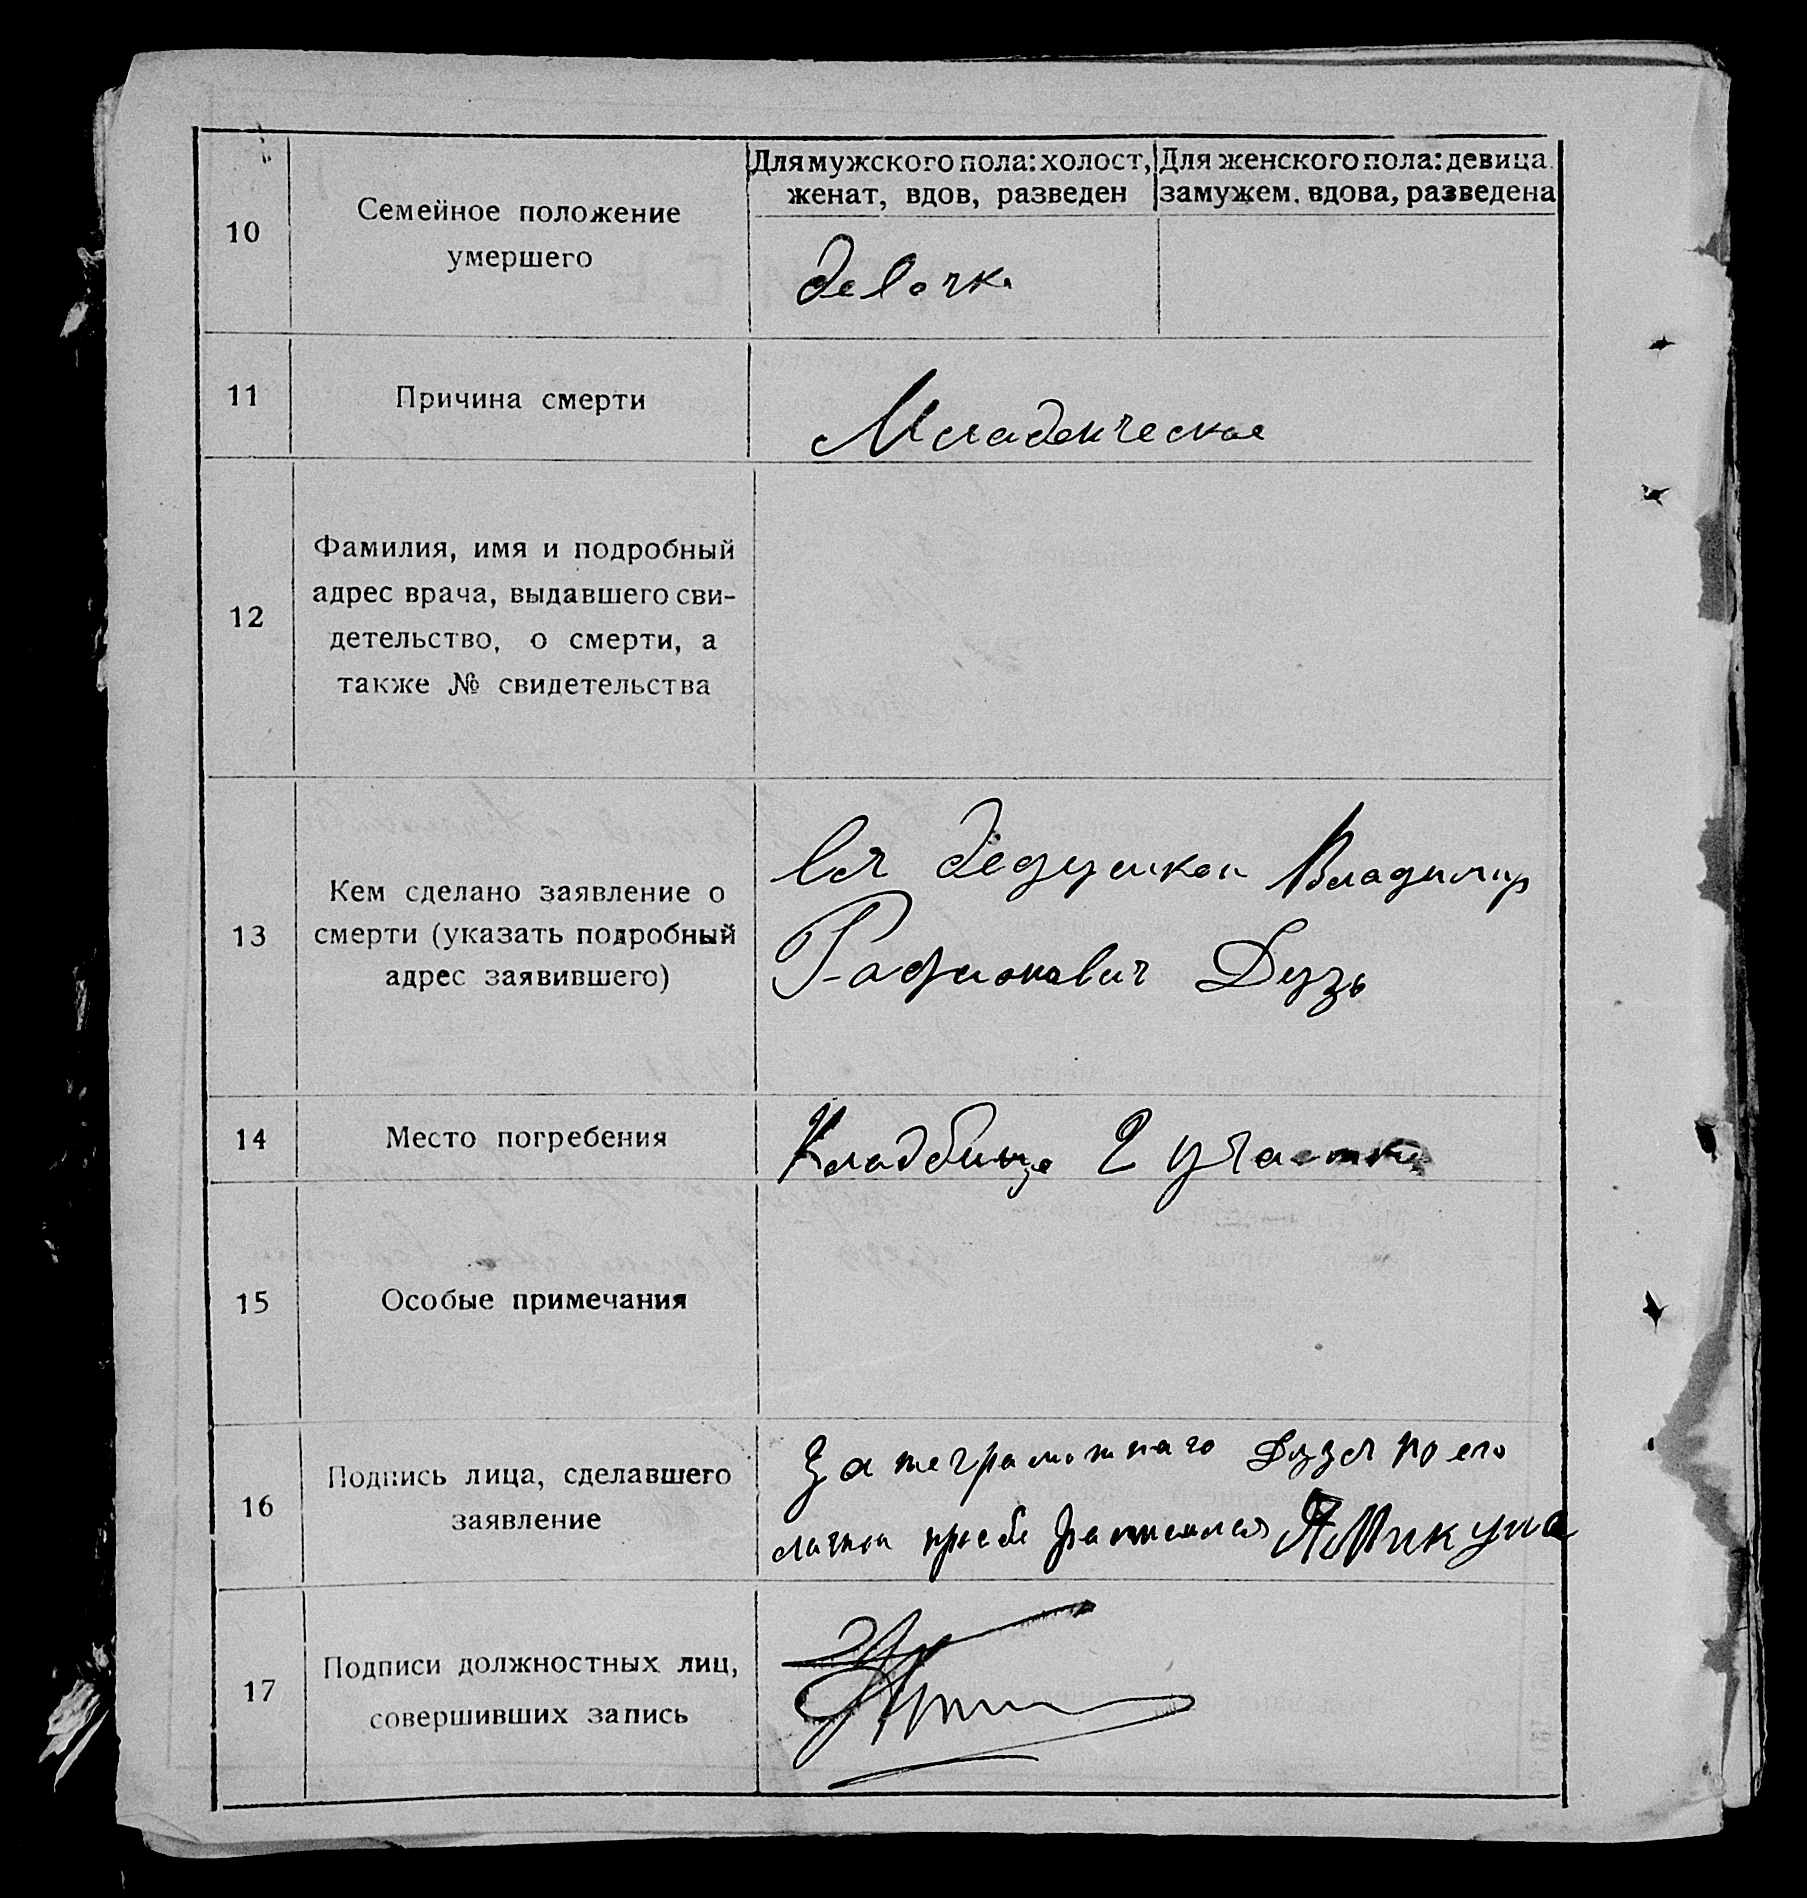 Для мужского пола: холост, женат, вдов, разведен
Для женского пола: девица замужем. вдова, разведена
10
Семейное положение
умершего
девочка
11
Причина смерти
Младенческое
12
Фамилия, имя и подробный
адрес врача, выдавшего сви-
детельство, о смерти, а
также № свидетельства
13
Кем сделано заявление о
смерти (указать подробный
адрес заявившего)
дедушкой Владимир
Радионович Дузь
14
Место погребения
Кладбище 2 участка
15
Особые примечания
16
Подпись лица, сделавшего
заявление
За неграмотного Дузя по его
личной просбе Микула
17
Подписи должностных лиц,
совершивших запись